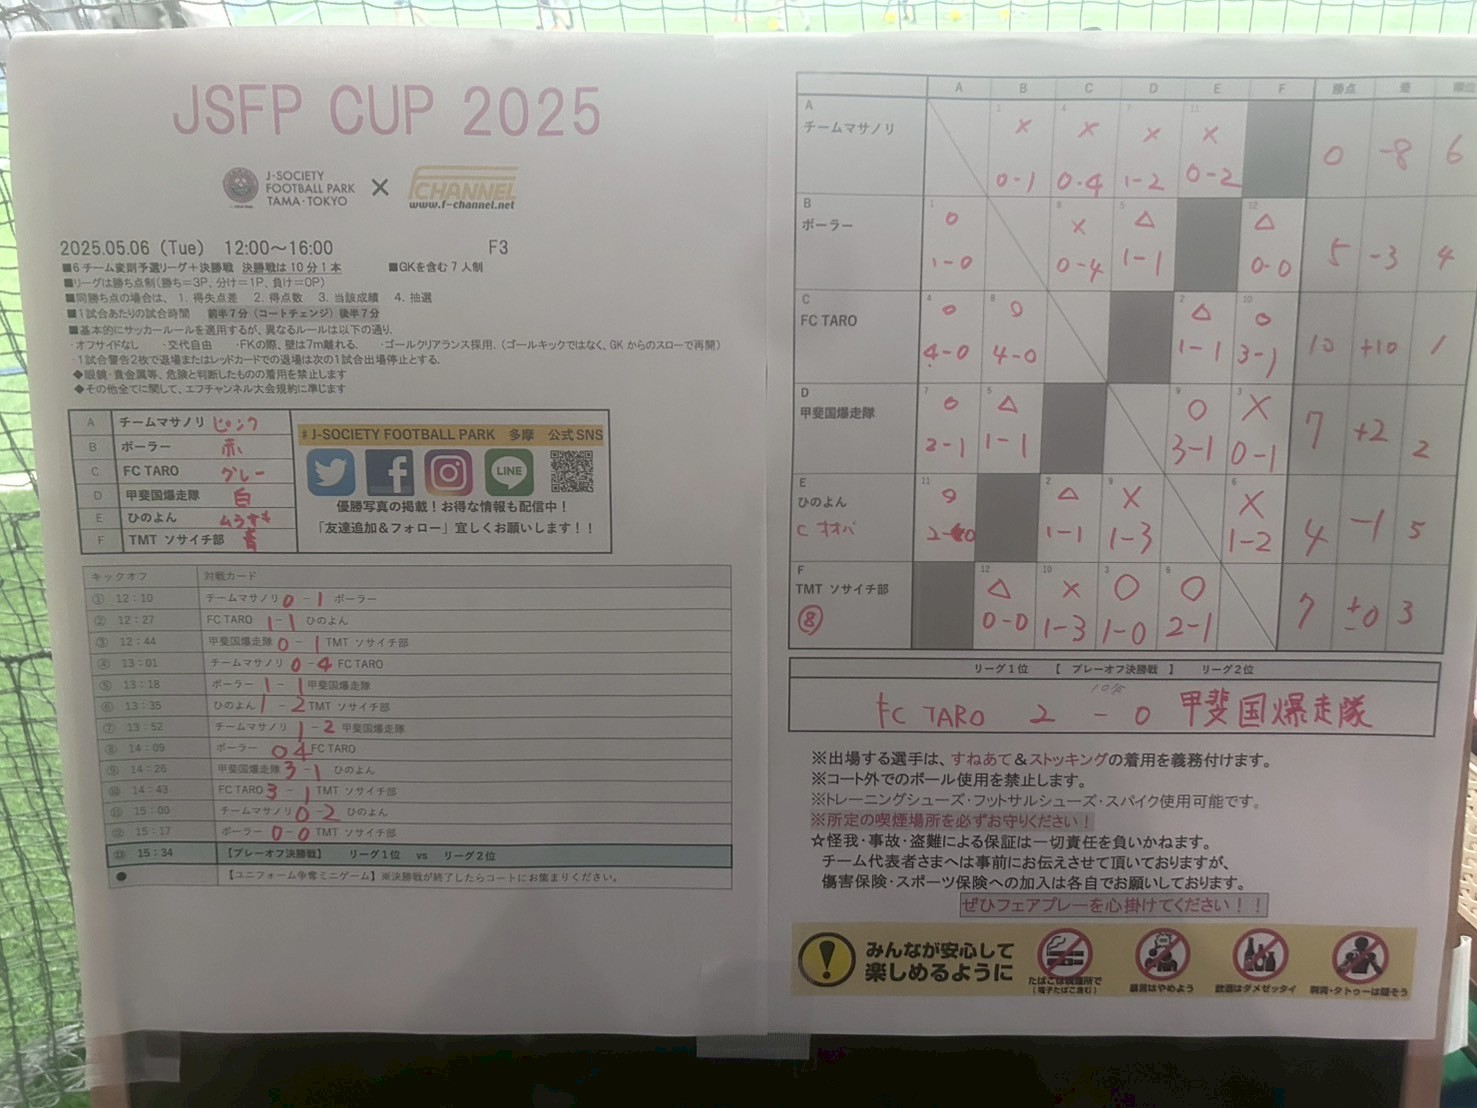 JSFP CUP 2025
J-SOCIETY
FOOTBALL PARK
TAMA・TOKYO
×
F CHANNEL
www.f-channel.net
2025.05.06 (Tue) 12:00～16:00 F3
■6チーム変則予選リーグ＋決勝戦 決勝戦は10分1本 ■GKを含む7人制
■リーグは勝ち点制(勝ち=3P、分け=1P、負け=0P)
■同勝ち点の場合は、 1. 得失点差 2. 得点数 3. 当該成績 4. 抽選
■1試合あたりの試合時間 前半7分（コートチェンジ）後半7分
■基本的にサッカールールを適用するが、異なるルールは以下の通り.
・オフサイドなし ・交代自由 ・FKの際、壁は7m離れる. ・ゴールクリアランス採用.（ゴールキックではなく、GKからのスローで再開）
・1試合警告2枚で退場またはレッドカードでの退場は次の1試合出場停止とする.
◆眼鏡・貴金属等、危険と判断したものの着用を禁止します
◆その他全てに関して、エフチャンネル大会規約に準じます
A チームマサノリ ピンク
B ボーラー 赤
C FC TARO グレー
D 甲斐国爆走隊 白
E ひのよん
F TMT ソサイチ部 青
♯J-SOCIETY FOOTBALL PARK 多摩 公式SNS
LINE
優勝写真の掲載！お得な情報も配信中！
「友達追加＆フォロー」宜しくお願いします！！
キックオフ 対戦カード
① 12:10 チームマサノリ 0 - 1 ボーラー
② 12:27 FC TARO 1-1 ひのよん
③ 12:44 甲斐国爆走隊 0 - 1 TMT ソサイチ部
④ 13:01 チームマサノリ 0-4 FC TARO
⑤ 13:18 ボーラー 1 - 1 甲斐国爆走隊
⑥ 13:35 ひのよん 1 - 2 TMT ソサイチ部
⑦ 13:52 チームマサノリ 1-2 甲斐国爆走隊
⑧ 14:09 ボーラー 0 4 FC TARO
⑨ 14:26 甲斐国爆走隊 3-1 ひのよん
⑩ 14:43 FC TARO 3 - 1 TMT ソサイチ部
⑪ 15:00 チームマサノリ 0-2 ひのよん
⑫ 15:17 ボーラー 0-0 TMT ソサイチ部
⑬ 15:34 【プレーオフ決勝戦】 リーグ1位 vs リーグ2位
● 【ユニフォーム争奪ミニゲーム】※決勝戦が終了したらコートにお集まりください。
A B C D E F 勝点 差 順位
A 1 4 7 11
チームマサノリ × × × × 0 -8 6
0-1 0-4 1-2 0-2
B 1 8 5 12
ボーラー ○ × △ △ 5 -3 4
1-0 0-4 1-1 0-0
C 4 8 2 10
FC TARO ○ ○ △ ○ 10 +10 1
4-0 4-0 1-1 3-1
D 7 5 9 3
甲斐国爆走隊 ○ △ ○ × 7 +2 2
2-1 1-1 3-1 0-1
E 11 2 9 6
ひのよん ○ △ × × 4 -1 5
2-0 1-1 1-3 1-2
F 12 10 3 6
TMT ソサイチ部 △ × ○ ○ 7 ±0 3
⑧ 0-0 1-3 1-0 2-1
リーグ1位 【 プレーオフ決勝戦 】 リーグ2位
10分
FC TARO 2 - 0 甲斐国爆走隊
※出場する選手は、すねあて＆ストッキングの着用を義務付けます。
※コート外でのボール使用を禁止します。
※トレーニングシューズ・フットサルシューズ・スパイク使用可能です。
※所定の喫煙場所を必ずお守りください！
☆怪我・事故・盗難による保証は一切責任を負いかねます。
チーム代表者さまへは事前にお伝えさせて頂いておりますが、
傷害保険・スポーツ保険への加入は各自でお願いしております。
ぜひフェアプレーを心掛けてください！！
みんなが安心して
楽しめるように
たばこは喫煙所で
（電子たばこ含む）
暴言はやめよう
飲酒はダメゼッタイ
刺青・タトゥーは隠そう